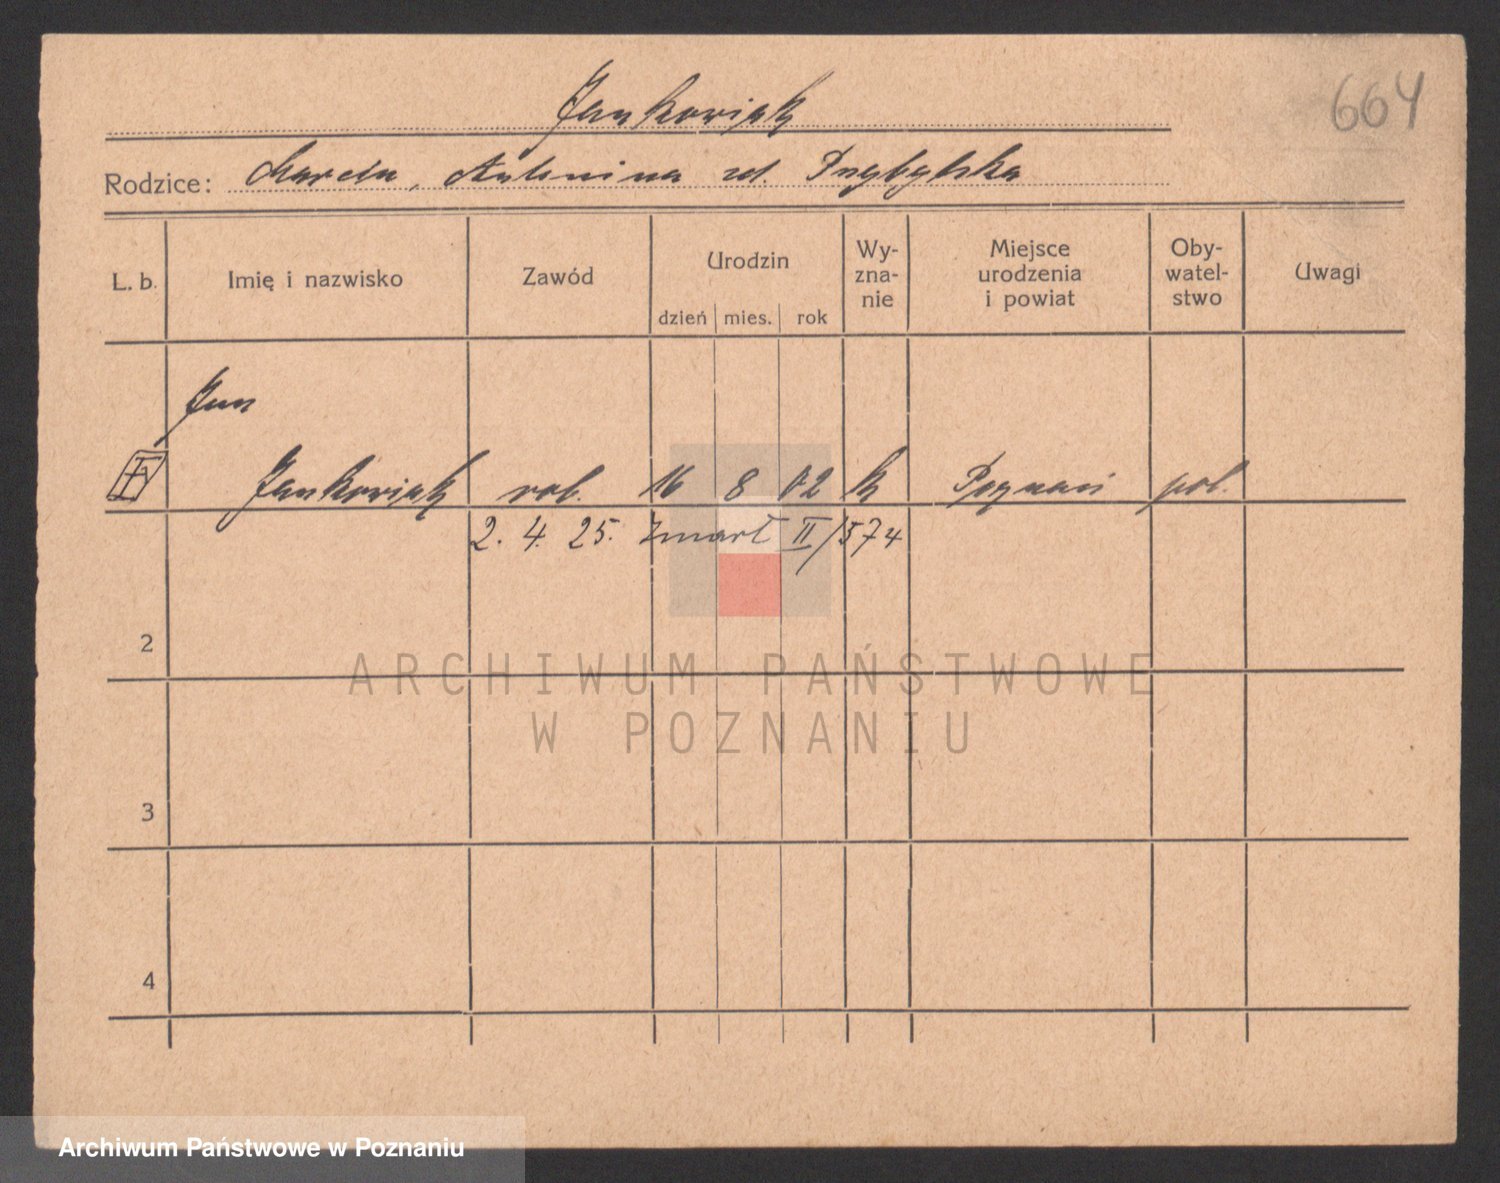 664
Jankowiak
Rodzice: Marcin, Antonina zd. Przybylska
L. b. Imię i nazwisko Zawód Urodzin dzień mies. rok Wy-zna-nie Miejsce urodzenia i powiat Oby-watel-stwo Uwagi
Jan
Jankowiak rob. 16 8 02 k Poznań pol.
2. 4. 25. zmarł II/574
2
3
4
ARCHIWUM PAŃSTWOWE
W POZNANIU
Archiwum Państwowe w Poznaniu